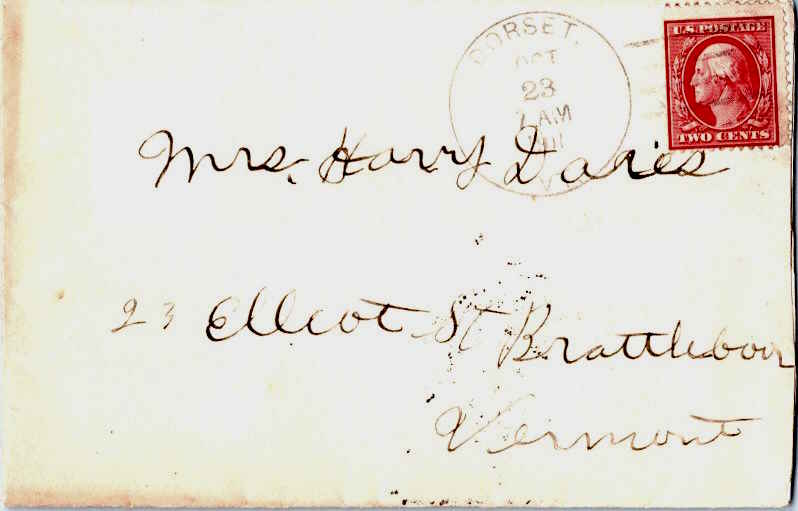 DORSET,
OCT
23
7 AM
VT.
U.S. POSTAGE
TWO CENTS
Mrs. Harry Davies
23 Elliot St Brattleboro
Vermont